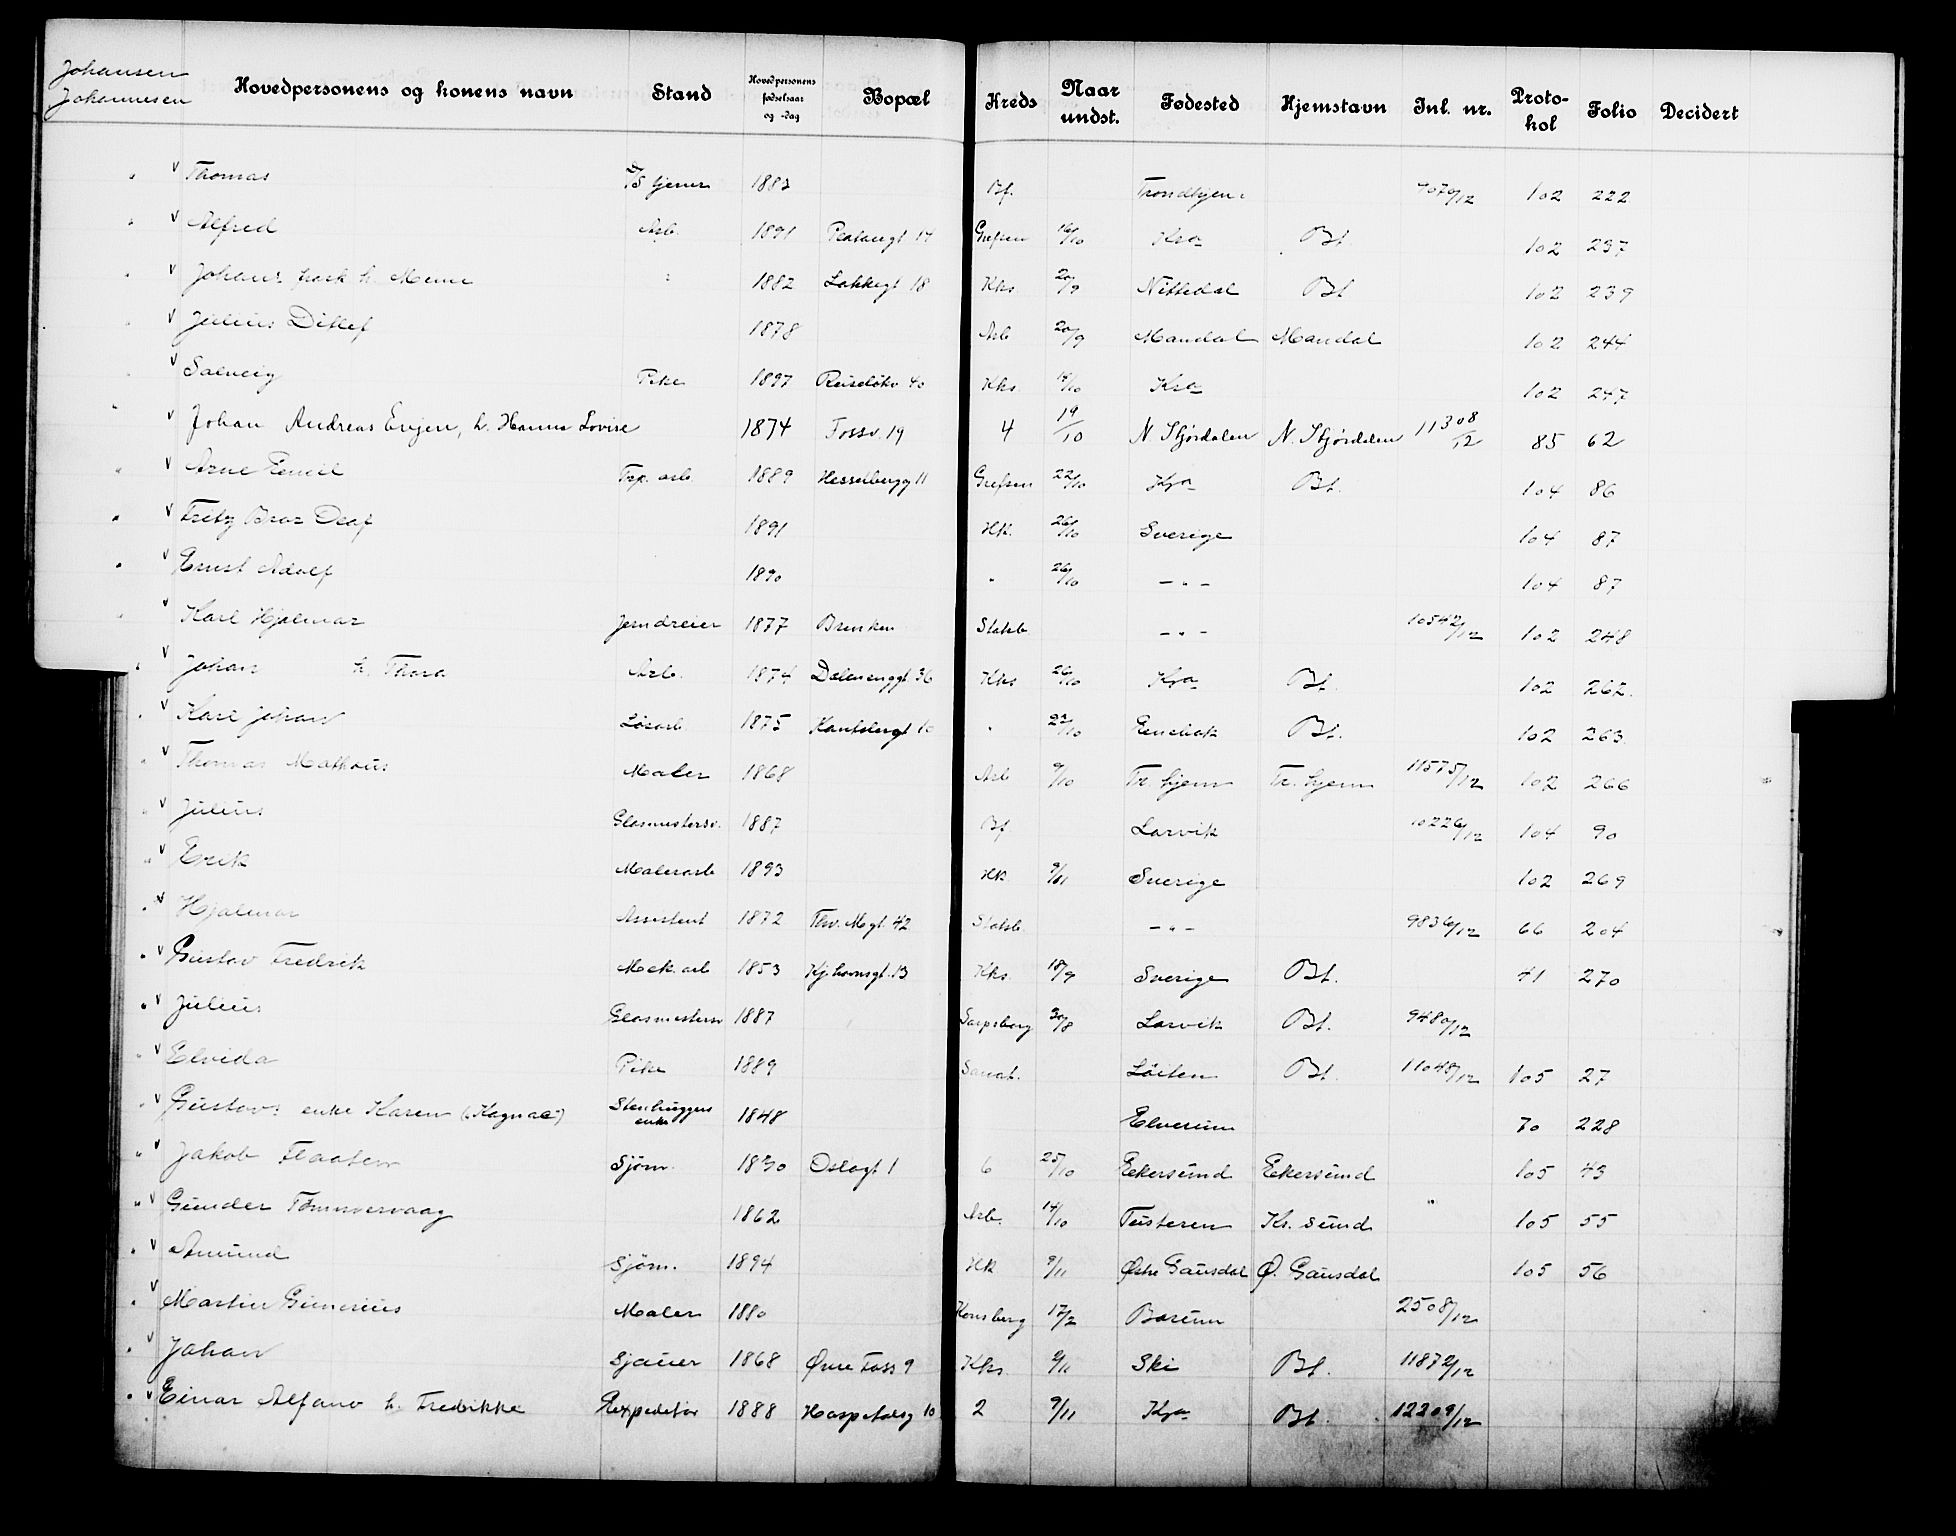 Johansen
Johannesen
Hovedpersonens og konens navn Stand Hovedpersonens fødselsaar og -dag Bopæl Kreds Naar undst. Fødested Hjemstavn Inl. nr. Protokol Folio Decidert
Thomas tjener 1883 Bf. 7070/12 102 222
Alfred Arb. 1891 Grefsen 16/10 Kra Bt. 102 237
Johans h. 1882 Lakkegt 18 Kks. 20/9 Nittedal Bt 102 239
Julius Ditlef 1878 Arb 20/9 Mandal Mandal 102 244
Solveig Pike 1897 40 Kks. 14/10 Kra 102 247
Johan Andreas Evjen, h. Hanna Lovise 1874 Fossv. 19 4 19/10 N. Stjørdalen N. Stjørdalen 11308/12 85 62
Arne Emil Trp. arb. 1889 Hesselbergg 11 Grefsen 22/10 Kra Bt. 104 86
Fritz Bror Olaf 1891 Hk. 26/10 Sverige 104 87
Ernst Adolf 1890 " 26/10 — " — 104 87
Karl Hjalmar Jerndreier 1877 Brinken Stabb — " — 10542/12 102 248
Johan h. Thora Arb. 1874 Dælenenggt. 36 Kks 26/10 Kra Bt. 102 262.
Karl Johan Løsarb. 1875 " 23/10 Enebak Bt. 102 263.
Thomas Mathæus Maler 1868 Arb 9/10 Tr. hjem Tr. hjem 11575/12 102 266
Julius Glasmestersv. 1887 Bf. Larvik 10226/12 104 90
Erik Malerarb 1893 Hk. 9/11 Sverige 102 269
Hjalmar Assistent 1872 Thv. M.gt. 42 Stabb. — " — 9836/12 66 204
Gustav Fredrik Mek. arb 1853 Kj.havnsgt. 13 Kks. 18/9 Sverige Bt. 41 270
Julius Glasmestersv 1887 Sarpsborg 30/8 Larvik Bt. 9480/12
Elvida Pike 1889 Sanat. Løiten Bt. 11048/12 105 27
Gustavs enke Karen (Kagnæs) Stenhuggers enke 1848 Elverum 70 228
Jakob Flaaten Sjøm. Oslogt 1 6 25/10 Eekersund Eekersund 105 43
Gunder Tømmervaag 1862 Arb. 14/10 Tusteren Kr. sund " 105 55
Amund Sjøm. 1894 Hk 9/11 Østre Gausdal Ø. Gausdal 105 56
Martin Gunerius Maler 1880 Konsberg 17/2 Bærum 2508/12
Johan Sjauer 1868 Øvre Foss 9 Kks. 2/11 Ski Bt. 11872/12
Einar Alfano h. Fredrikke Expeditør 1888 Hospitalsg 10 2 9/11 Kra Bt. 12209/12